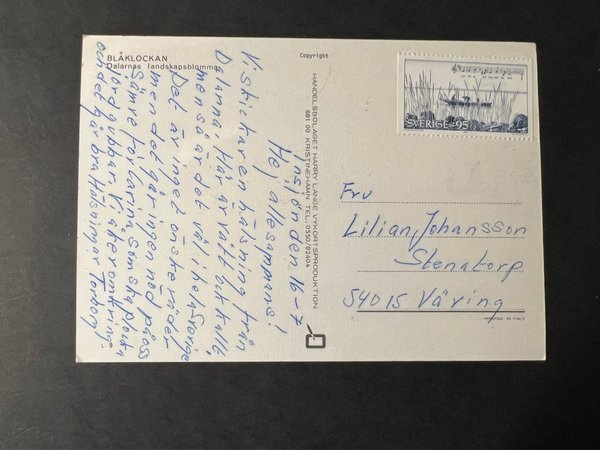 BLÅKLOCKAN
Dalarnas landskapsblomma
Copyright
Ensjön den 16-7
Hej allesammans!
Vi skickar en hälsning från
Dalarna. Här är vått och kallt,
men så är det väl i hela Sverige
Det är inget önskeväder
men det går ingen nöd på oss
Sämre för Carina som ska plocka
jordgubbar. Vi åker omkring
och det går bra Hälsningar Torborg
HANDELSBOLAGET HARRY LANGE VYKORTSPRODUKTION
681 00 KRISTINEHAMN TEL. 0550/82404
SVERIGE 95
Fru
Lilian Johansson
Stenatorp
54015 Väring
PRINTED IN ITALY